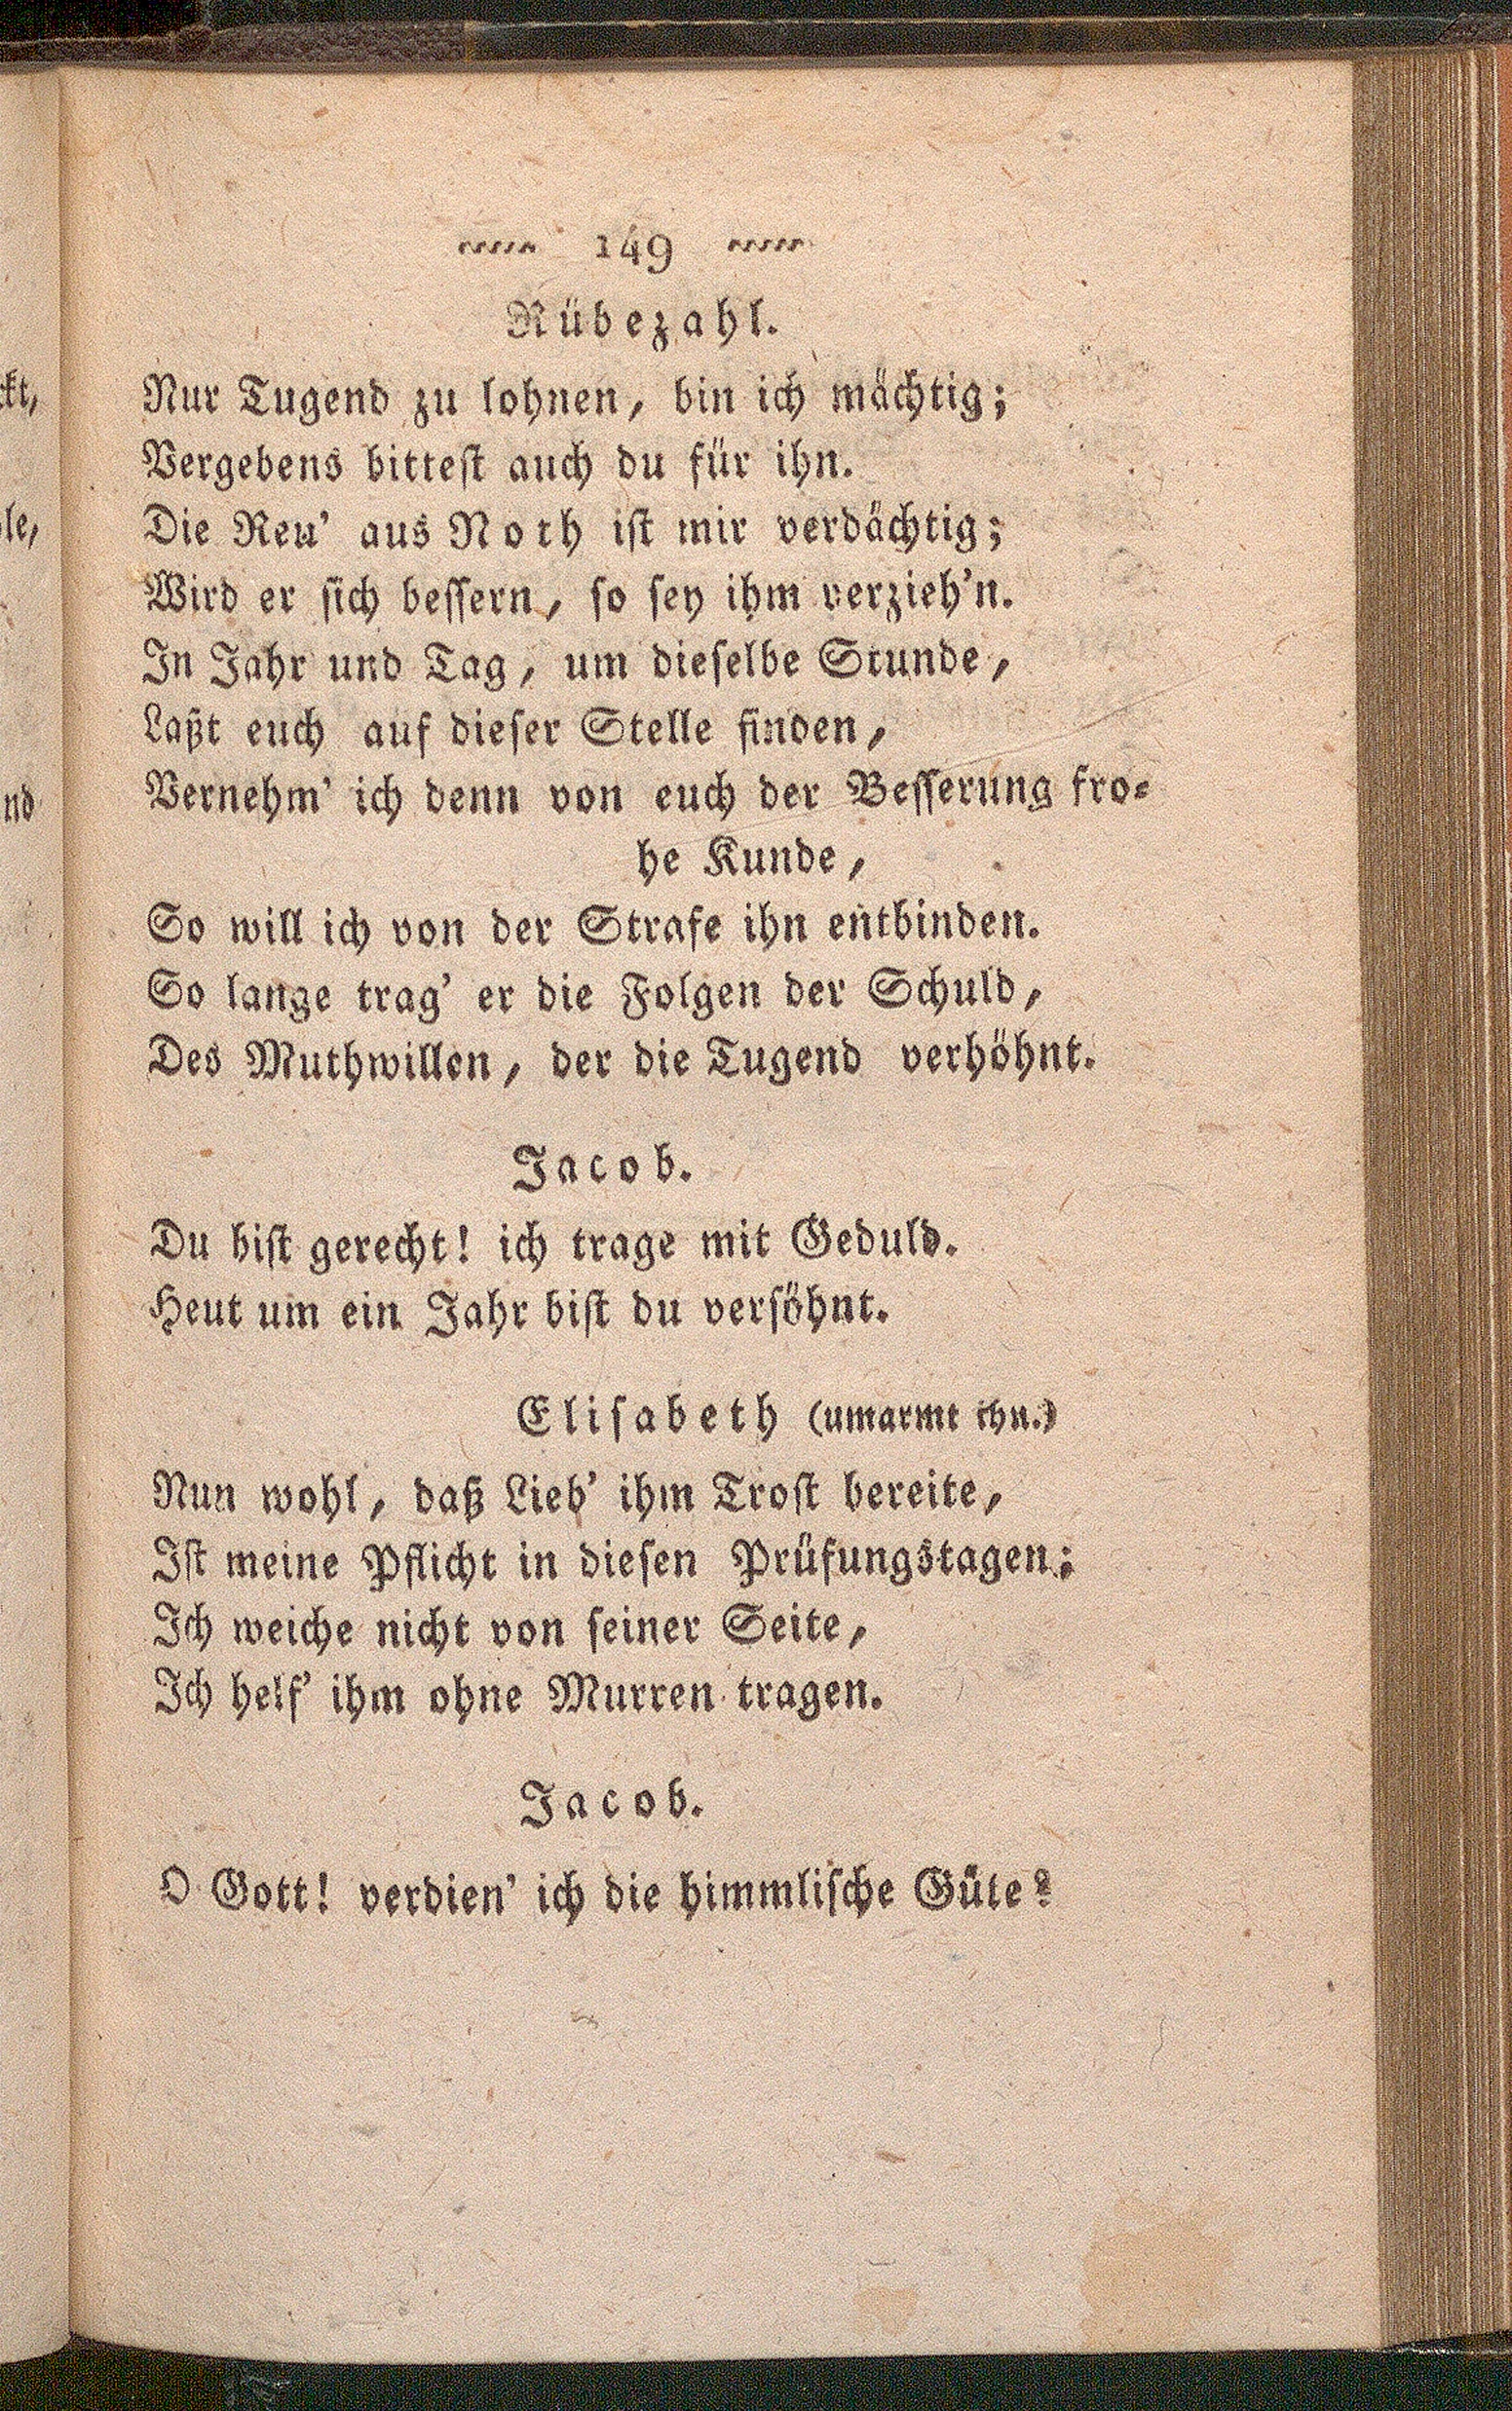 149
Rübezahl.
Nur Tugend zu lohnen, bin ich mächtig;
Vergebens bittest auch du für ihn.
Die Reu' aus Noth ist mir verdächtig;
Wird er sich bessern, so sey ihm verzieh'n.
In Jahr und Tag, um dieselbe Stunde,
Laßt euch auf dieser Stelle finden,
Vernehm' ich denn von euch der Besserung fro-
he Kunde,
So will ich von der Strafe ihn entbinden.
So lange trag' er die Folgen der Schuld,
Des Muthwillen, der die Tugend verhöhnt.
Jacob.
Du bist gerecht! ich trage mit Geduld.
Heut um ein Jahr bist du versöhnt.
Elisabeth (umarmt ihn.)
Nun wohl, daß Lieb' ihm Trost bereite,
Ist meine Pflicht in diesen Prüfungstagen;
Ich weiche nicht von seiner Seite,
Ich helf' ihm ohne Murren tragen.
Jacob.
O Gott! verdien' ich die himmlische Güte?